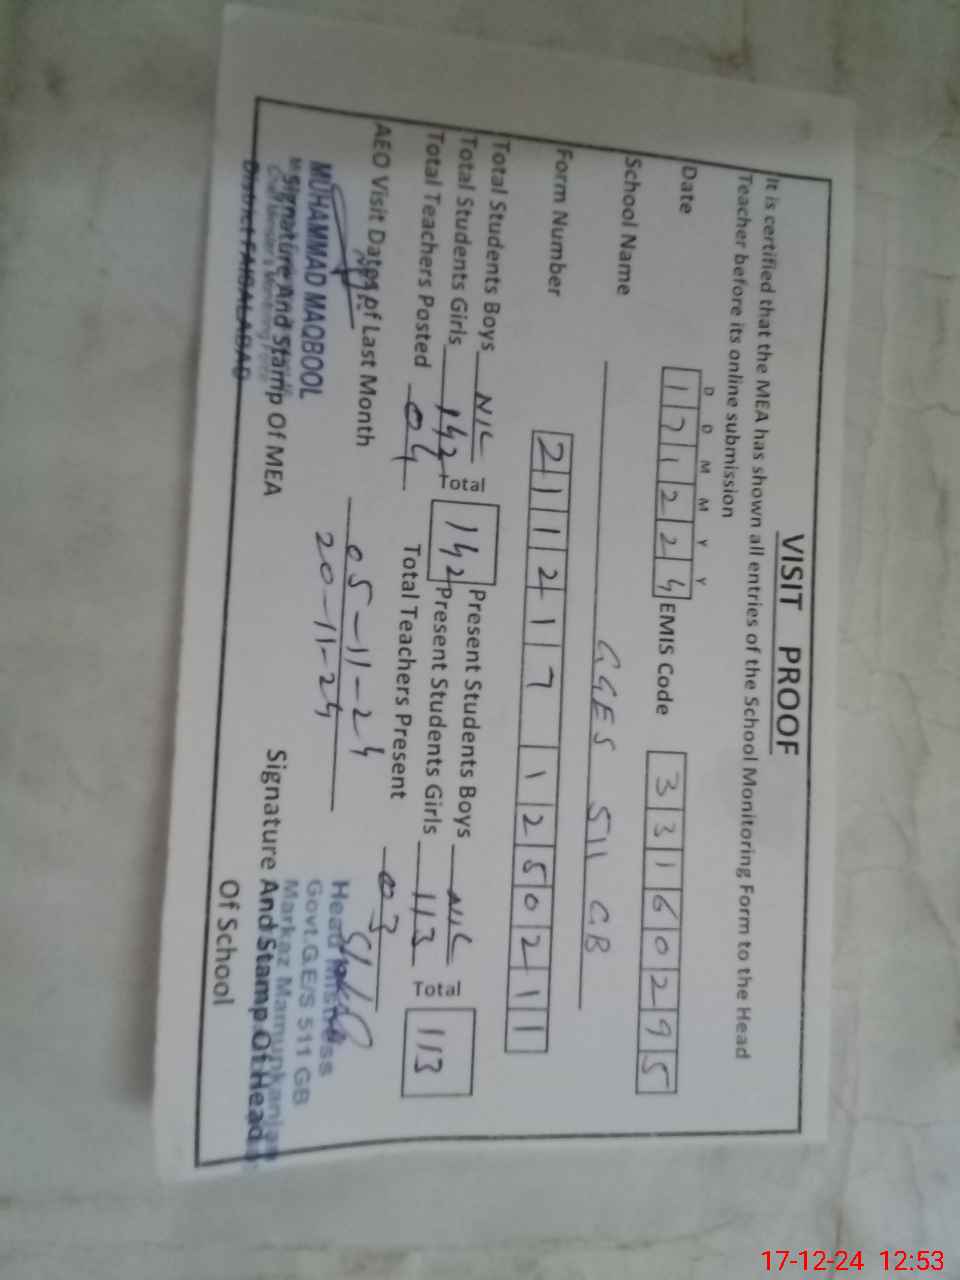 VISIT PROOF
It is certified that the MEA has shown all entries of the School Monitoring Form to the Head
Teacher before its online submission
D D M M Y Y
Date 171224 EMIS Code 33160295
School Name GGES 511 GB
Form Number 2112171250211
Total Students Boys NIL Total 142 Present Students Boys NIL Total 113
Total Students Girls 142 Present Students Girls 113
Total Teachers Posted 04 Total Teachers Present 03
AEO Visit Dates of Last Month 05-11-24
20-11-24
MUHAMMAD MAQBOOL
Signature And Stamp Of MEA
District FAISALABAD
Head Mistress
Govt.G.E/S 511 GB
Markaz Mamunkanjan
Signature And Stamp Of Head
Of School
17-12-24 12:53